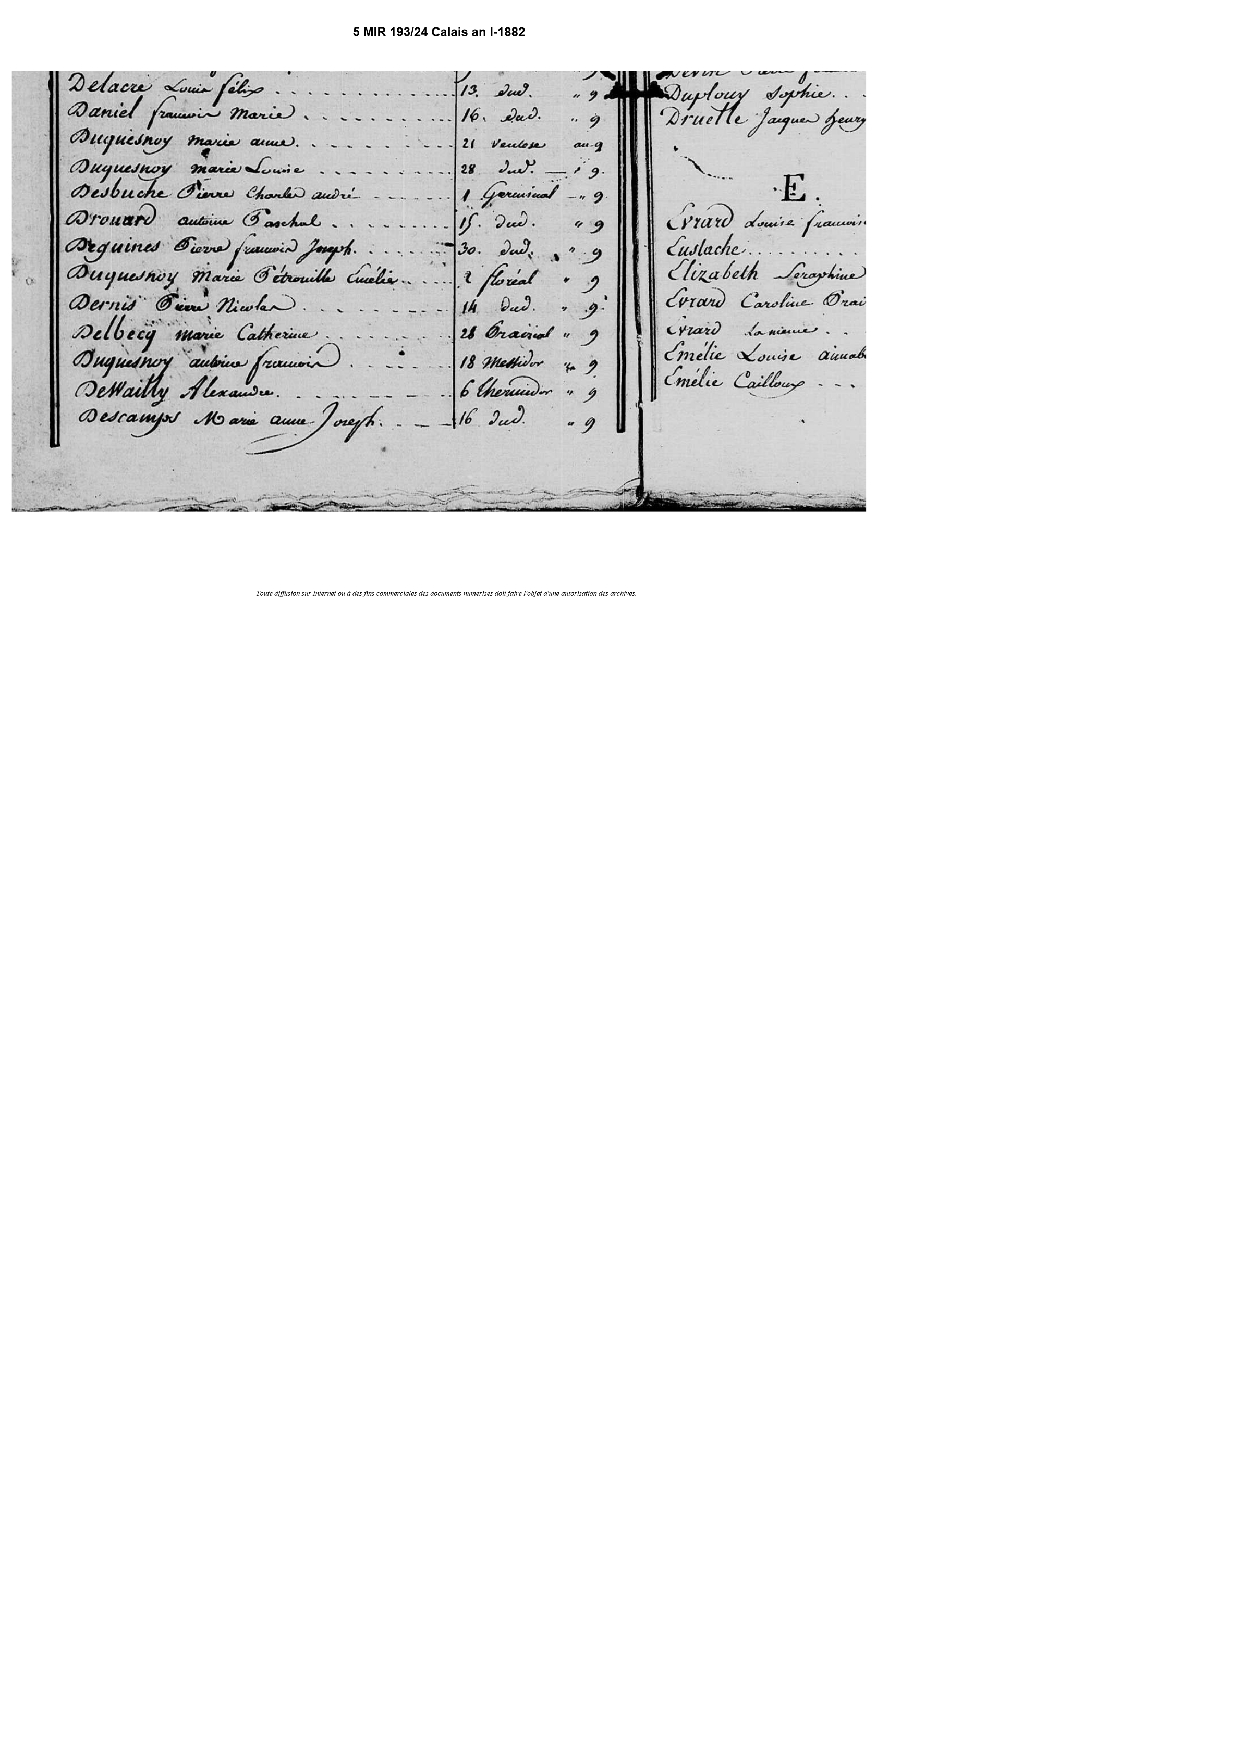 5 MIR 193/24 Calais an I-1882
Delacre Louis félix 13. dud. " 9
Daniel francois Marie 16. dud. " 9
Duquesnoy marie anne. 21 Ventose an 9
Duquesnoy marie Louise 28 dud. — " 9.
Desbuche Pierre Charles andré 1 Germinal — 9
Drouard antoine Paschal 15. dud. " 9
Deguines Pierre francois Joseph. 30. dud. " 9
Duquesnoy Marie Pétronille Emélie 2 floréal " 9
Dernis Pierre Nicolas 14 dud. " 9
Delbecq marie Catherine 28 Prairial " 9
Duquesnoy antoine francois 18 Messidor " 9
DeWailly Alexandre. 6 Thermidor " 9
Descamps Marie anne Joseph. 16 dud. " 9
Duplouy Sophie
Druelle Jacques henry
E.
Evrard Louise francois
Eustache
Elizabeth Seraphine
Evrard Caroline Prai
Evrard la même
Emélie Louise aimab
Emélie Cailloux
Toute diffusion sur Internet ou à des fins commerciales des documents numérisés doit faire l'objet d'une autorisation des archives.